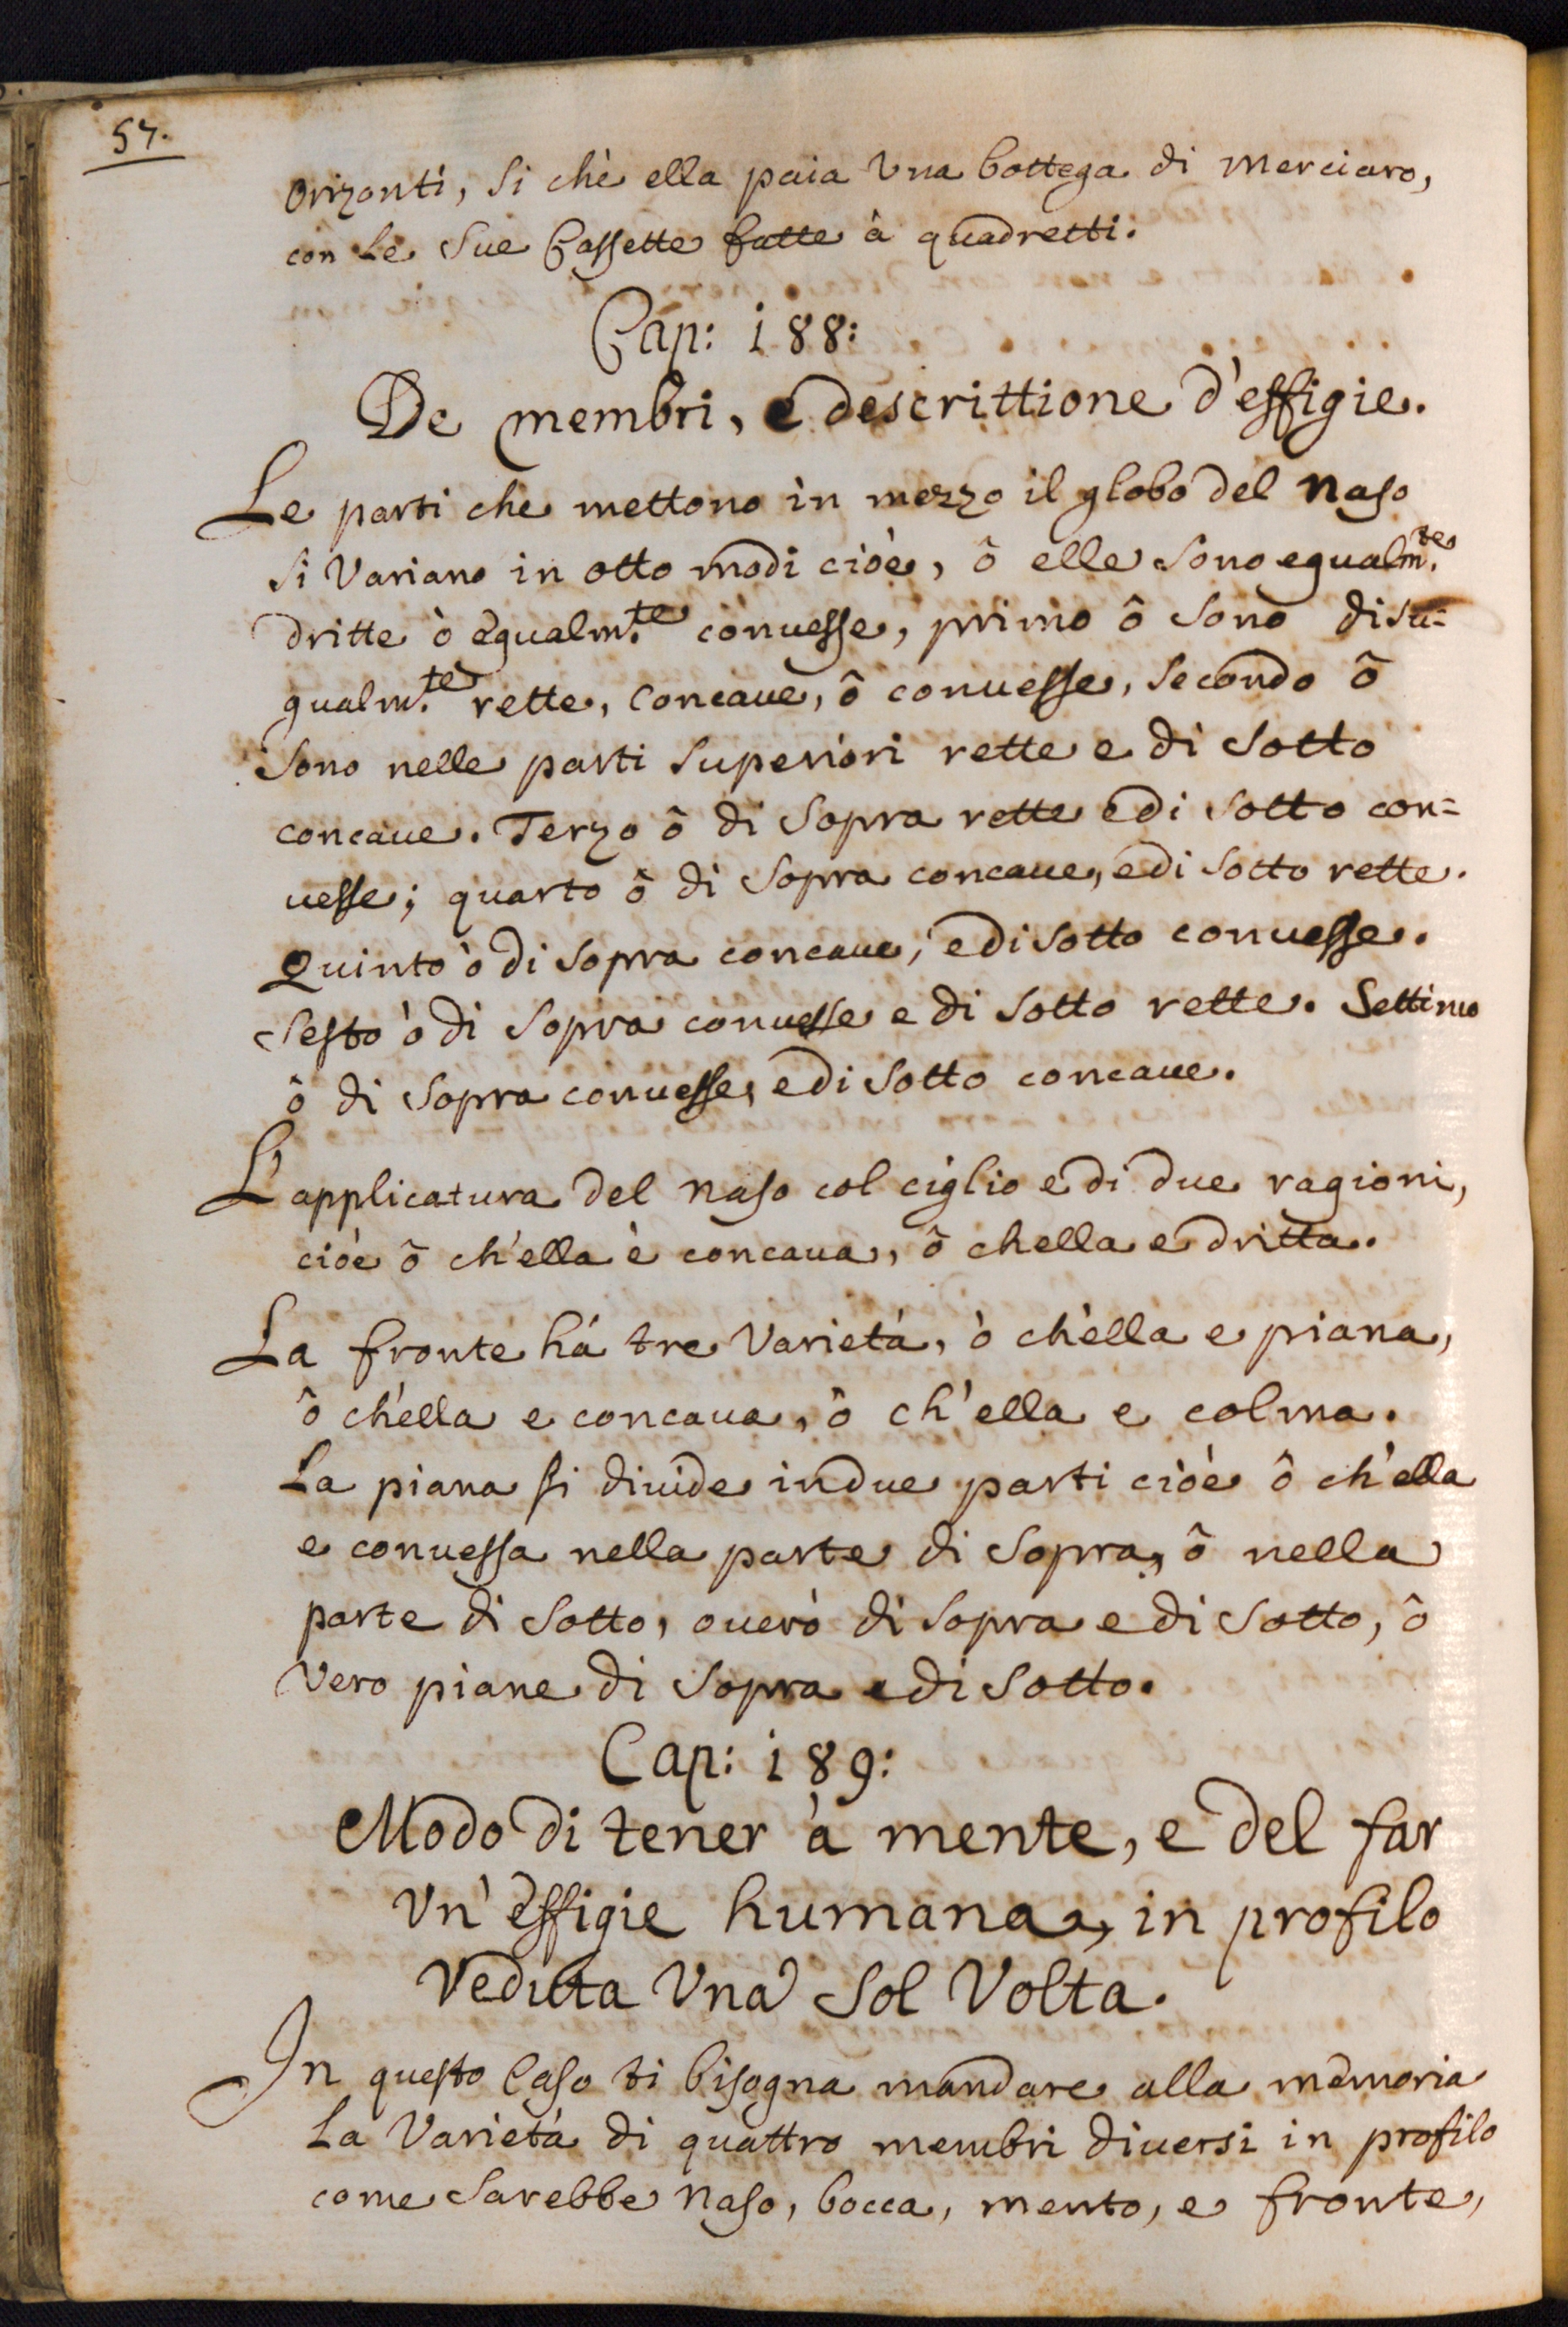 57.
orizonti, si chè ella paia Una bottega di merciaro,
con le sue Cassette fatte à quadretti.
Cap: 188:
De membri, e descrittione d'effigie.
Le parti che mettono in mezzo il globo del naso
si Variano in otto modi cioè, ô elle sono egualm.te
dritte ò egualm.te conuesse, primo ô sono disu=
gualm.te rette, concaue, ô conuesse, secondo ô
sono nelle parti superiori rette e di sotto
concaue. Terzo ô di sopra rette e di sotto con=
uesse; quarto ô di sopra concaue, e di sotto rette.
Quinto ò di sopra concaue, e di sotto conuesse.
Sesto ò di sopra conuesse e di sotto rette. Settimo
ô di sopra conuesse, e di sotto concaue.
L'applicatura del naso col ciglio e di due ragioni,
cioè ô ch'ella è concaua, ô chella e dritta.
La fronte há tre Varietá, ò ch'ella e piana,
ô ch'ella e concaua, ô ch'ella e colma.
La piana si diuide in due parti cioè ô ch'ella
e conuessa nella parte di sopra, ô nella
parte di sotto, ouerò di sopra e di sotto, ô
Vero piane di sopra e di sotto.
Cap: 189:
Modo di tener à mente, e del far
Vn'effigie humana, in profilo
Veduta Vna sol Volta.
In questo Caso ti bisogna mandare alla memoria
la Varietá di quattro membri diuersi in profilo
come sarebbe naso, bocca, mento, e fronte,